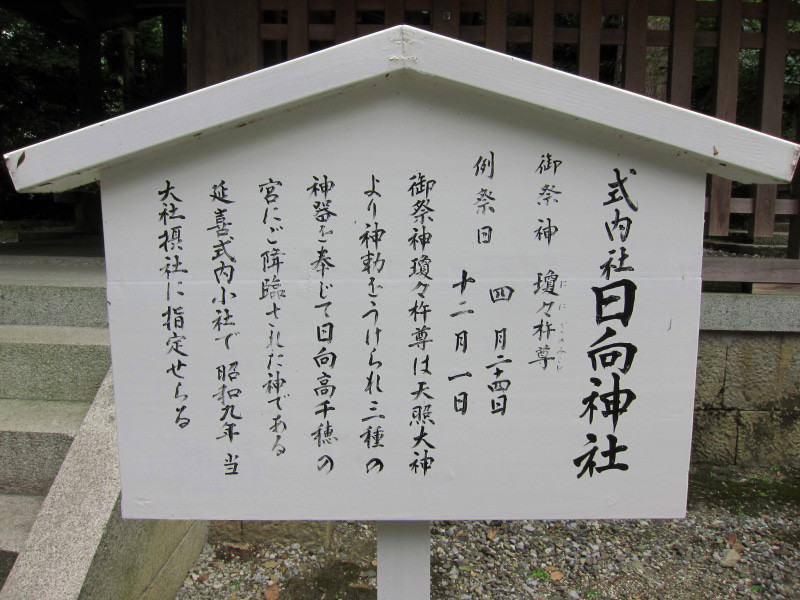 式内社日向神社
御祭神　瓊々杵尊
ににぎのみこと
例祭日　四月二十四日
十二月一日
御祭神瓊々杵尊は天照大神
より神勅をうけられ三種の
神器を奉じて日向高千穂の
宮にご降臨された神である
延喜式内小社で昭和九年当
大社摂社に指定せらる